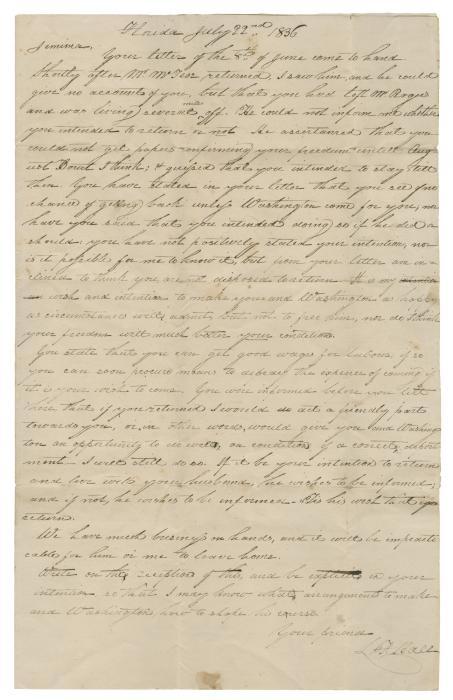 Florida July 22nd 1836
Jemima,
Your letter of the 8th of June come to hand
Shortly after Mr. McTier returned, I saw him, and he could
give no accounts of you, but that you had left Mr Rogers
and was living several miles off. He could not inform me whether
you intended to return or not. He ascertained that you
could not get papers confirming your freedom untill
Court I think; & guessed that you intended to stay till
then. You have stated in your letter that you see (no
chance of getting) back unless Washington come for you, nor
have you said that you intended doing so if he did or
should; you have not positively stated your intention, nor
is it possible for me to know it, but from your letter am in=
clined to think you are not disposed to return It is my
wish and intention to make you and Washington as happy
as circumstances will admit, but not to free him, nor do I think
your freedom will much better your condition.
You state that you can get good wages for labour, if so
you can soon procure means to defray the expense of coming if
it is your wish to come. You were informed before you left
here that if you returned I would act a friendly part
towards you, or, in other words, would give you and Washing=
ton an opportunity to do well, on condition of a correct deport
ment— I will still do so. If it be your intention to return
and live with your husband, he wishes to be informed;
and if not, he wishes to be informed— Tis his wish that you
return.
We have much business on hands, and it will be impracti
cable for him or me to leave home.
Write on the reception of this, and be explicit in your
intention so that I may know what arrangements to make
and Washington how to shape his course
Your friend